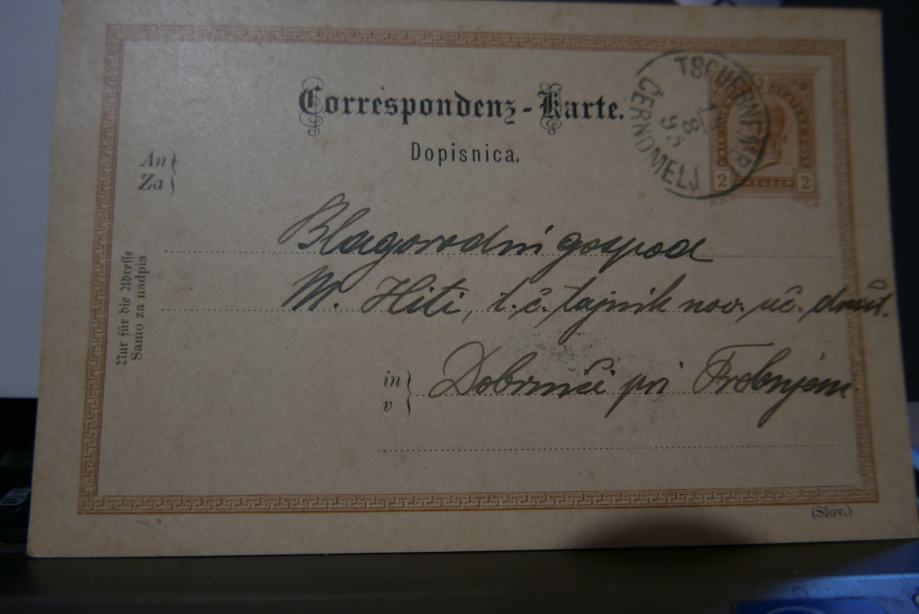 Correspondenz-Karte.
Dopisnica.
TSCHERNEMBL
ČERNOMELJ
8
2 KREUZER 2
An
Za
Nur für die Adresse
Samo za nadpis
Blagorodni gospod
M. Hiti, t. č. tajnik nov. uč. društ.
in
v
Dobrniči pri Trebnjem
(Slov.)